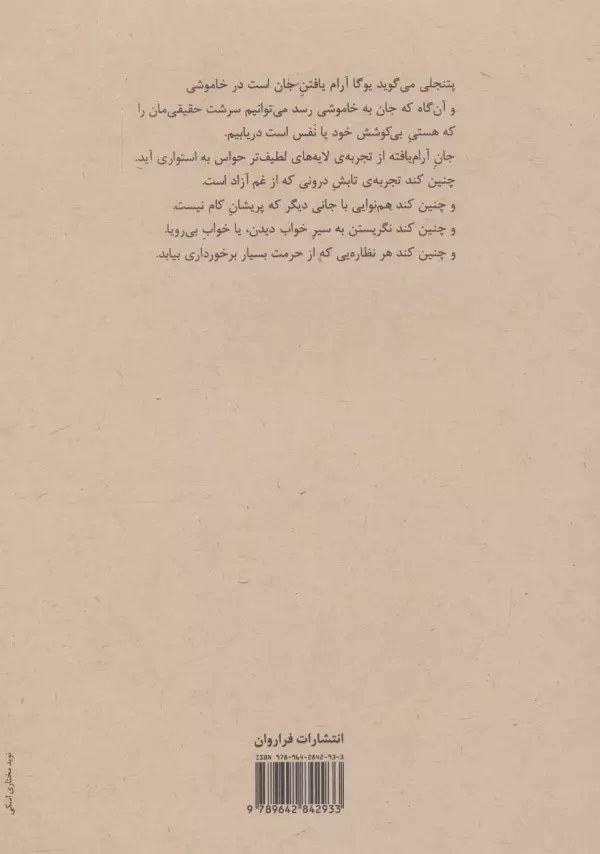 پتنجلی می‌گوید یوگا آرام یافتنِ جان است در خاموشی
و آن‌گاه که جان به خاموشی رسد می‌توانیم سرشت حقیقی‌مان را
که هستیِ بی‌کوشش خود یا نَفس است دریابیم.
جانِ آرام‌یافته از تجربه‌ی لایه‌های لطیف‌تر حواس به استواری آید.
چنین کند تجربه‌ی تابشِ درونی که از غم آزاد است.
و چنین کند هم‌نوایی با جانی دیگر که پریشانِ کام نیست.
و چنین کند نگریستن به سیرِ خواب دیدن، یا خوابِ بی‌رویا.
و چنین کند هر نظاره‌یی که از حرمت بسیار برخورداری بیابد.
انتشارات فراروان
ISBN 978-964-2842-93-3
9 789642 842933
نوید مختاری اسکی